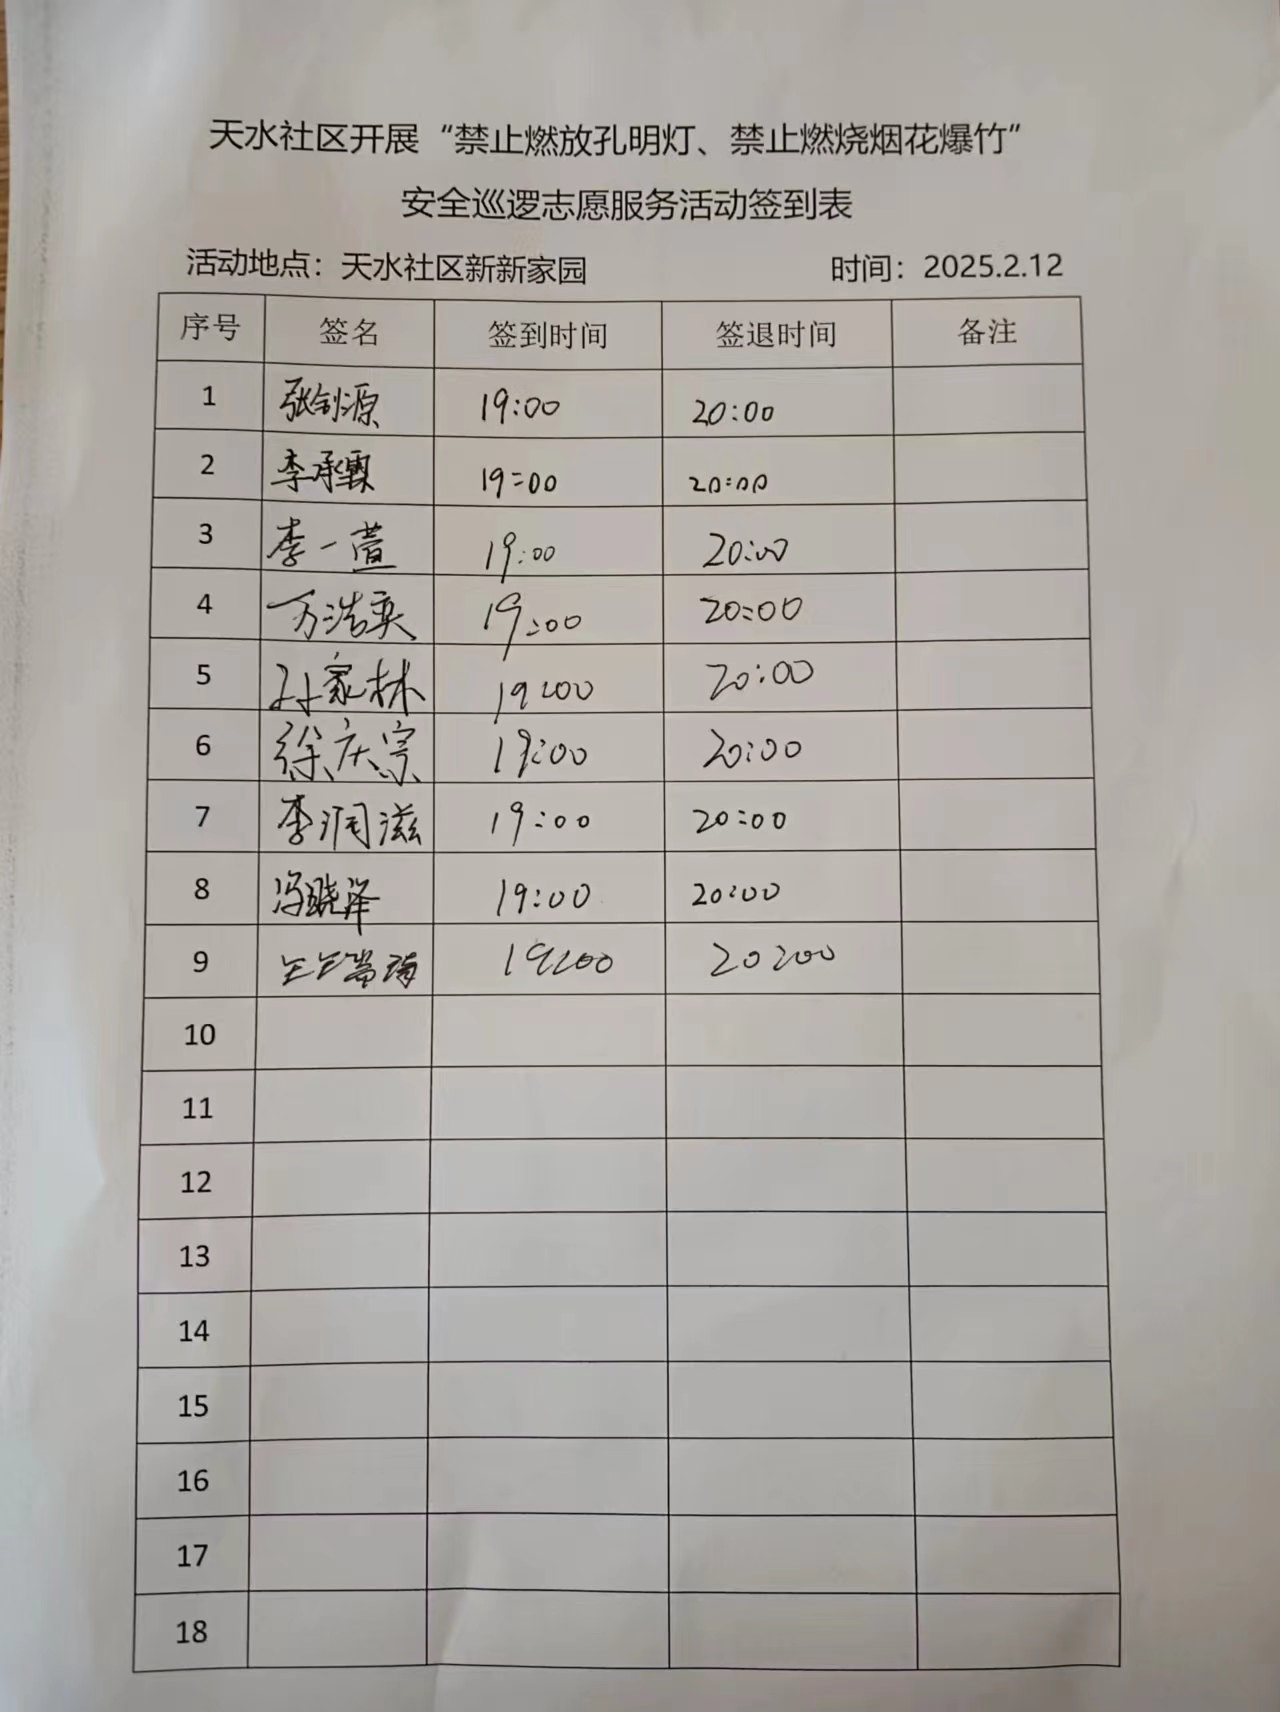 天水社区开展“禁止燃放孔明灯、禁止燃烧烟花爆竹”
安全巡逻志愿服务活动签到表
活动地点：天水社区新新家园 时间：2025.2.12
序号 签名 签到时间 签退时间 备注
1 张剑源 19:00 20:00
2 李承霖 19:00 20:00
3 李一萱 19:00 20:00
4 万浩奕 19:00 20:00
5 孙家林 19:00 20:00
6 徐庆宗 19:00 20:00
7 李润滋 19:00 20:00
8 冯晓泽 19:00 20:00
9 19:00 20:00
10
11
12
13
14
15
16
17
18